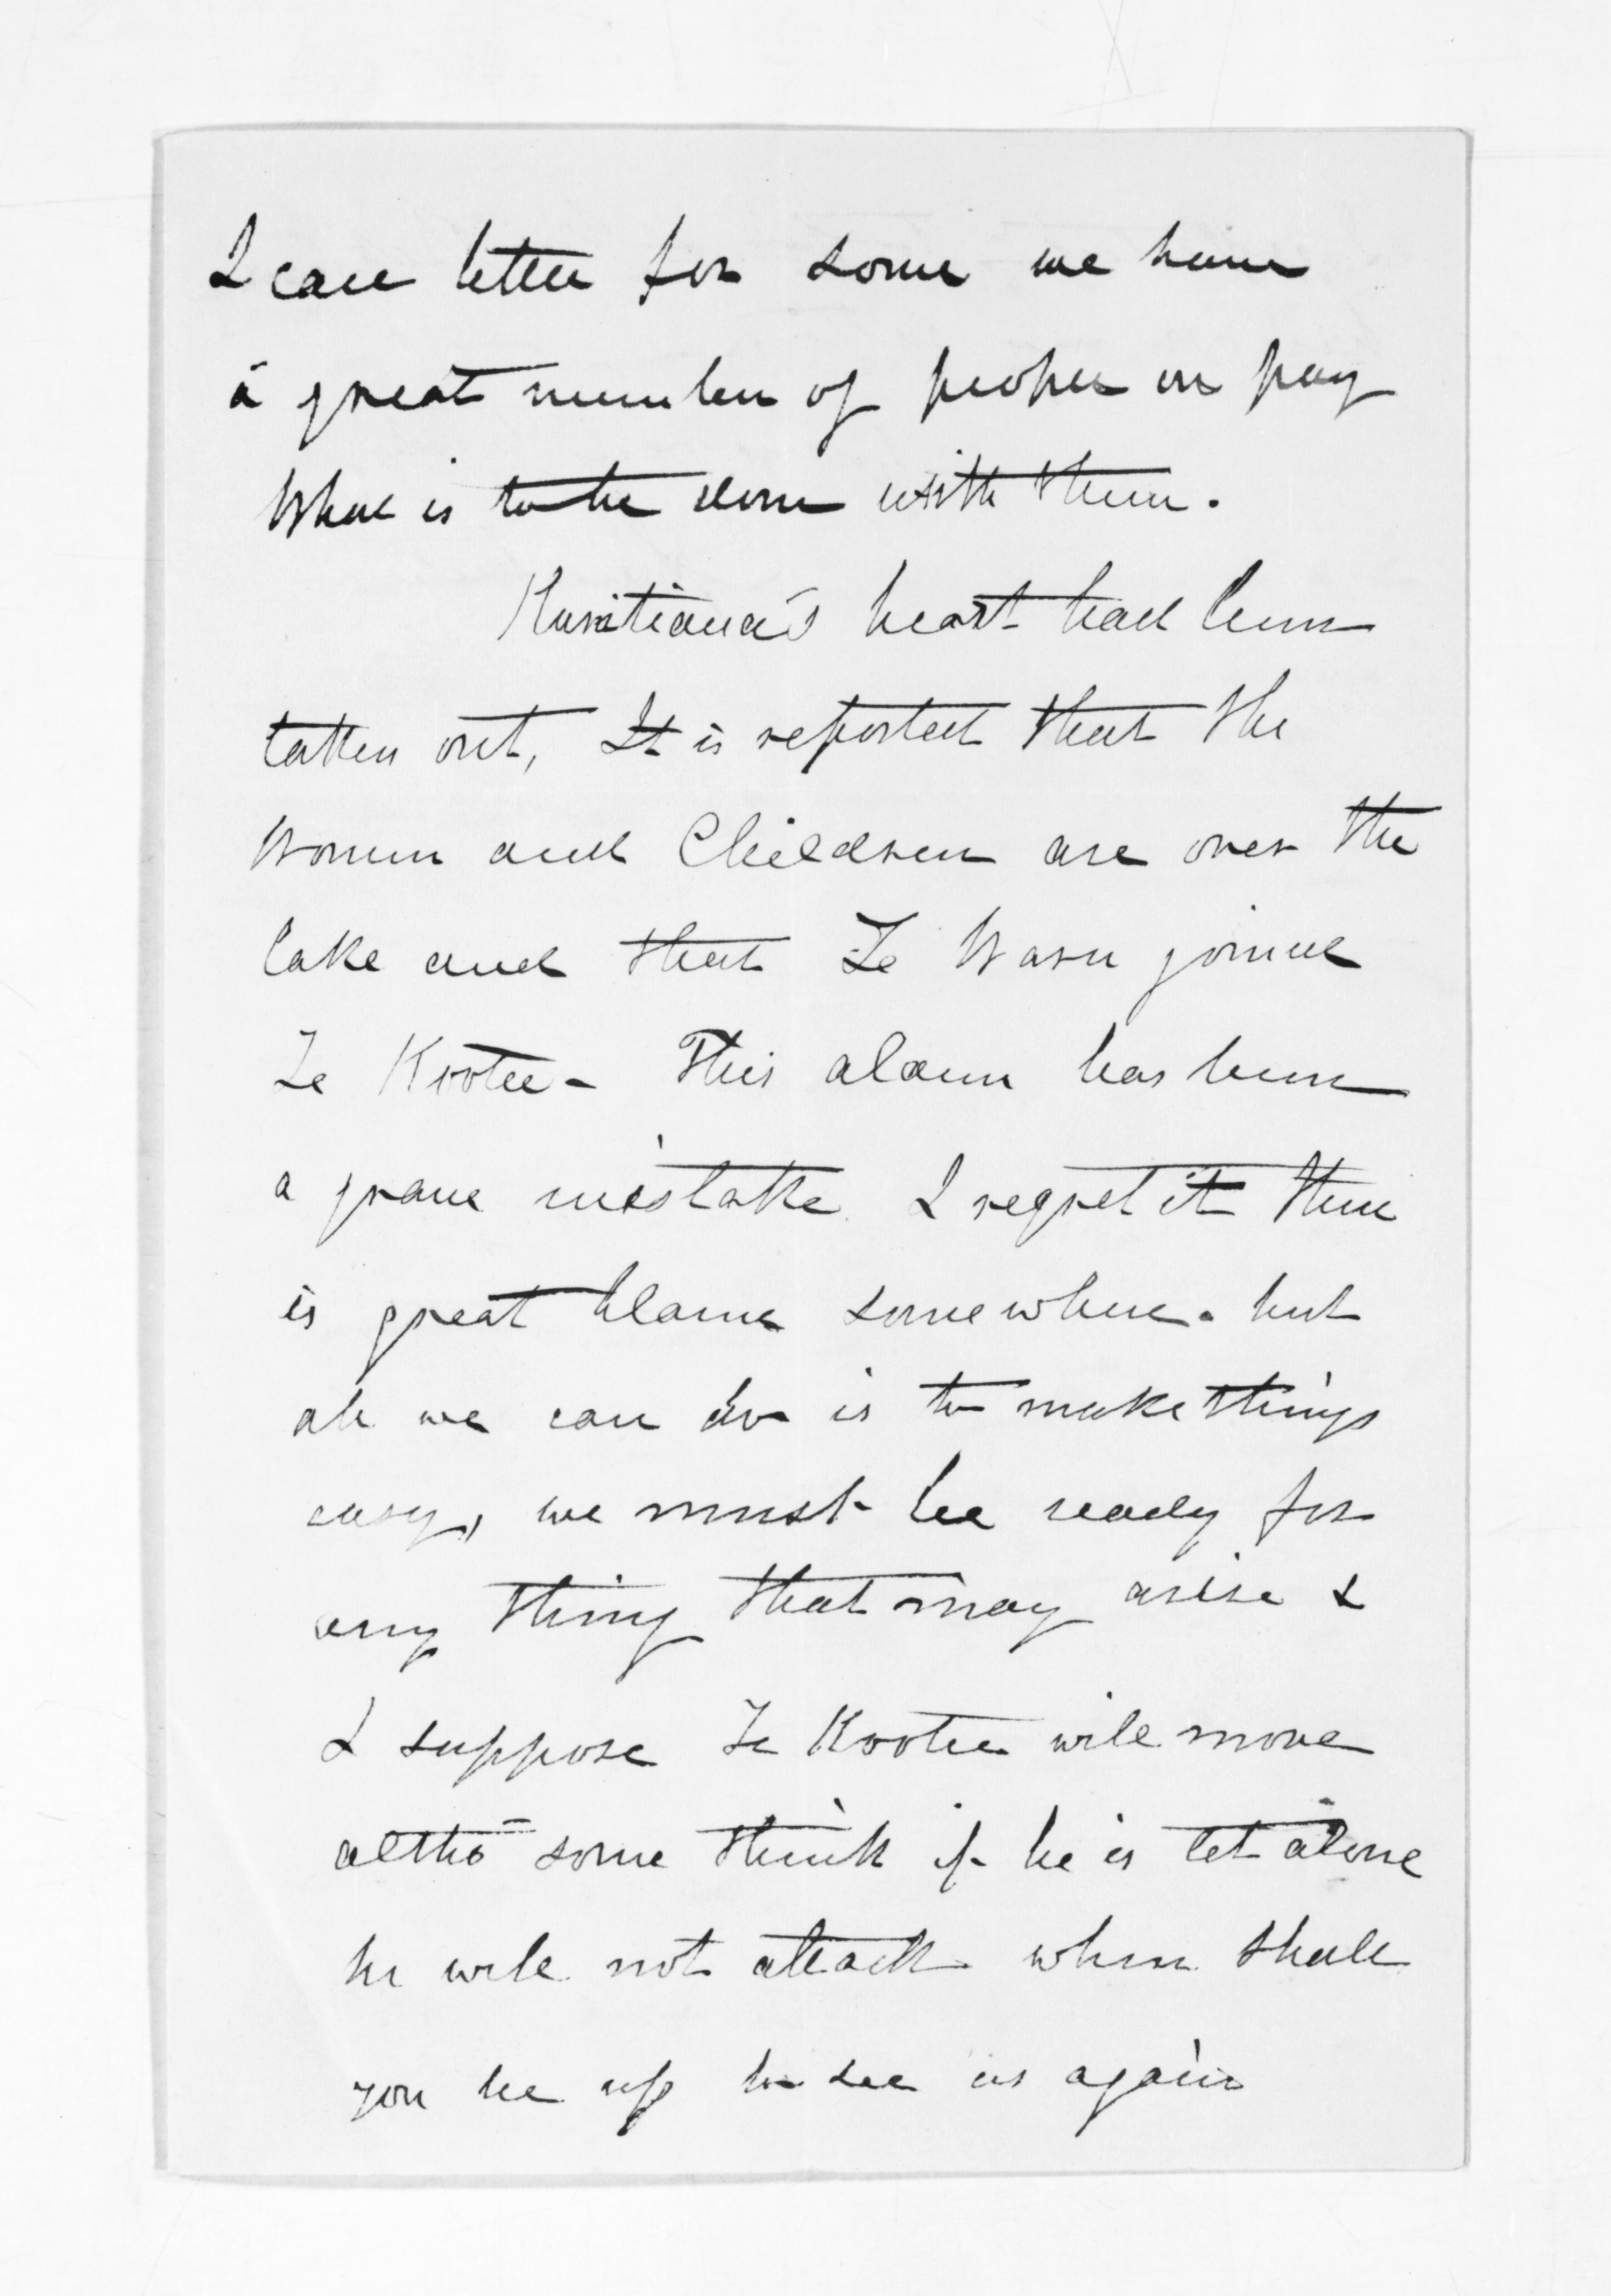 I can better for some we have
a great number of people on pay
What is to be done with them.
Karaitiana's heart had been
taken out, It is reported that the
Women and Children are over the
lake and that Te Waru joined
Te Kooti - This alarm has been
a grave mistake. I regret it there
is great blame somewhere. but
all we can do is to make things
easy, we must be ready for
any thing that may arise &
I suppose Te Kooti will move
altho some think if he is let alone
he will not attack. when shall
you be up to see us again